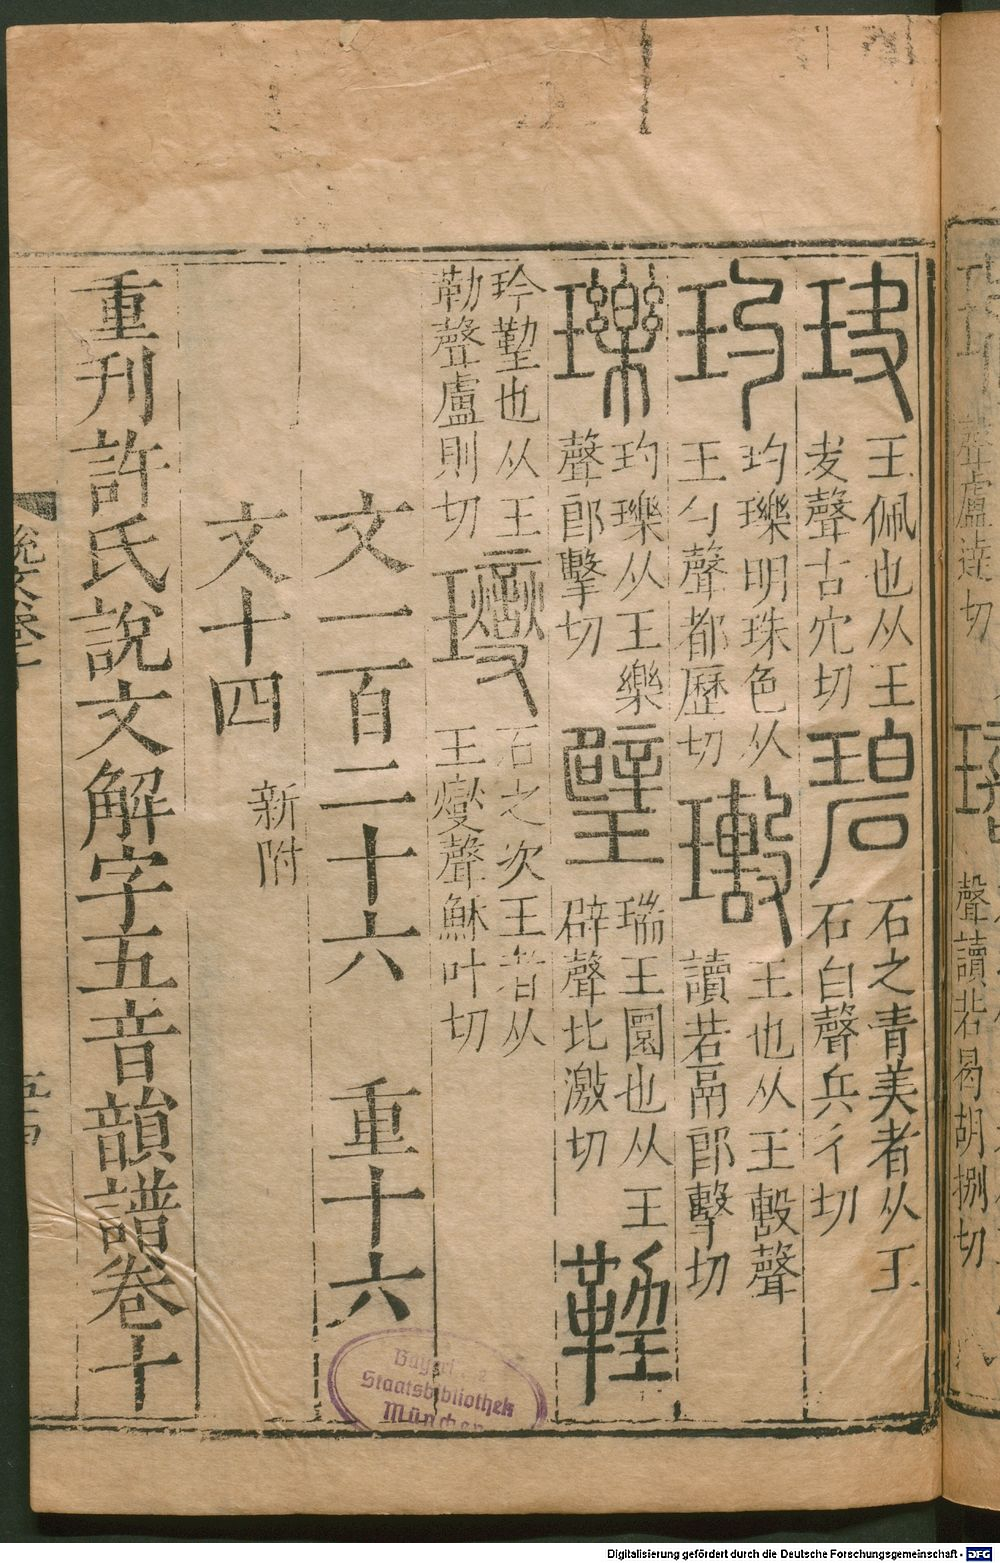 聲盧達切
聲讀若曷胡捌切
玦 王佩也从王
夬聲古穴切
碧 石之青美者从王
石白聲兵彳切
玓 玓瓅明珠色从
王勺聲都歷切
王也从王毄聲
讀若鬲郎擊切
瓅 玓瓅从王樂
聲郎擊切
璧 瑞王圜也从王
辟聲比激切
玪也从王
勒聲盧則切
石之次王者从
王燮聲穌叶切
文一百二十六 重十六
文十四 新附
重刊許氏說文解字五音韻譜卷十
說文卷十
Bayer
Staatsbibliothek
München
Digitalisierung gefördert durch die Deutsche Forschungsgemeinschaft - DFG